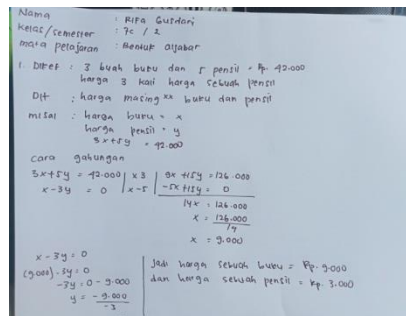 Nama : Rifa Gusdari
Kelas/semester : 7c / 2
mata pelajaran : Bentuk aljabar
1. Diket : 3 buah buku dan 5 pensil = Rp. 42.000
harga 3 kali harga sebuah pensil
Dit : harga masing ** buku dan pensil
misal : harga buku = x
harga pensil = y
3x+5y = 42.000
cara gabungan
3x+5y = 42.000 | x 3 | 9x +15y = 126.000
x-3y = 0 | x-5 | -5x +15y = 0
14x = 126.000
x = 126.000
14
x = 9.000
x - 3y = 0
(9.000) - 3y = 0
-3y = 0 - 9.000
y = - 9.000
-3
Jadi harga sebuah buku = Rp. 9.000
dan harga sebuah pensil = Rp. 3.000